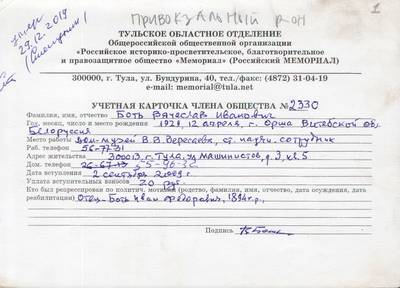 1
ПРИВОКЗАЛЬНЫЙ Р-ОН
29.12.2019
ТУЛЬСКОЕ ОБЛАСТНОЕ ОТДЕЛЕНИЕ
Общероссийской общественной организации
«Российское историко-просветительское, благотворительное
и правозащитное общество «Мемориал» (Российский МЕМОРИАЛ)
300000, г. Тула, ул. Бундурина, 40, тел./факс: (4872) 31-04-19
e-mail: memorial@tula.net
УЧЕТНАЯ КАРТОЧКА ЧЛЕНА ОБЩЕСТВА № 2330
Фамилия, имя, отчество Боть Вячеслав Иванович
Год, месяц, число и место рождения 1928, 12 апреля, г. Орша Витебской об.
Белоруссия
Место работы Дом-музей В.В. Вересаева, ст. научн. сотрудник
Раб. телефон 56-77-31
Адрес жительства 300013, г. Тула, ул. Машинистов, д. 3, кв. 5
Дом. телефон
Дата вступления 2 сентября 2009 г.
Уплата вступительных взносов 20 руб.
Кто был репрессирован по политич. мотивам (родство, фамилия, имя, отчество, дата осуждения, дата
реабилитации) Отец - Боть Иван Федорович, 1894 г.р.,
Подпись